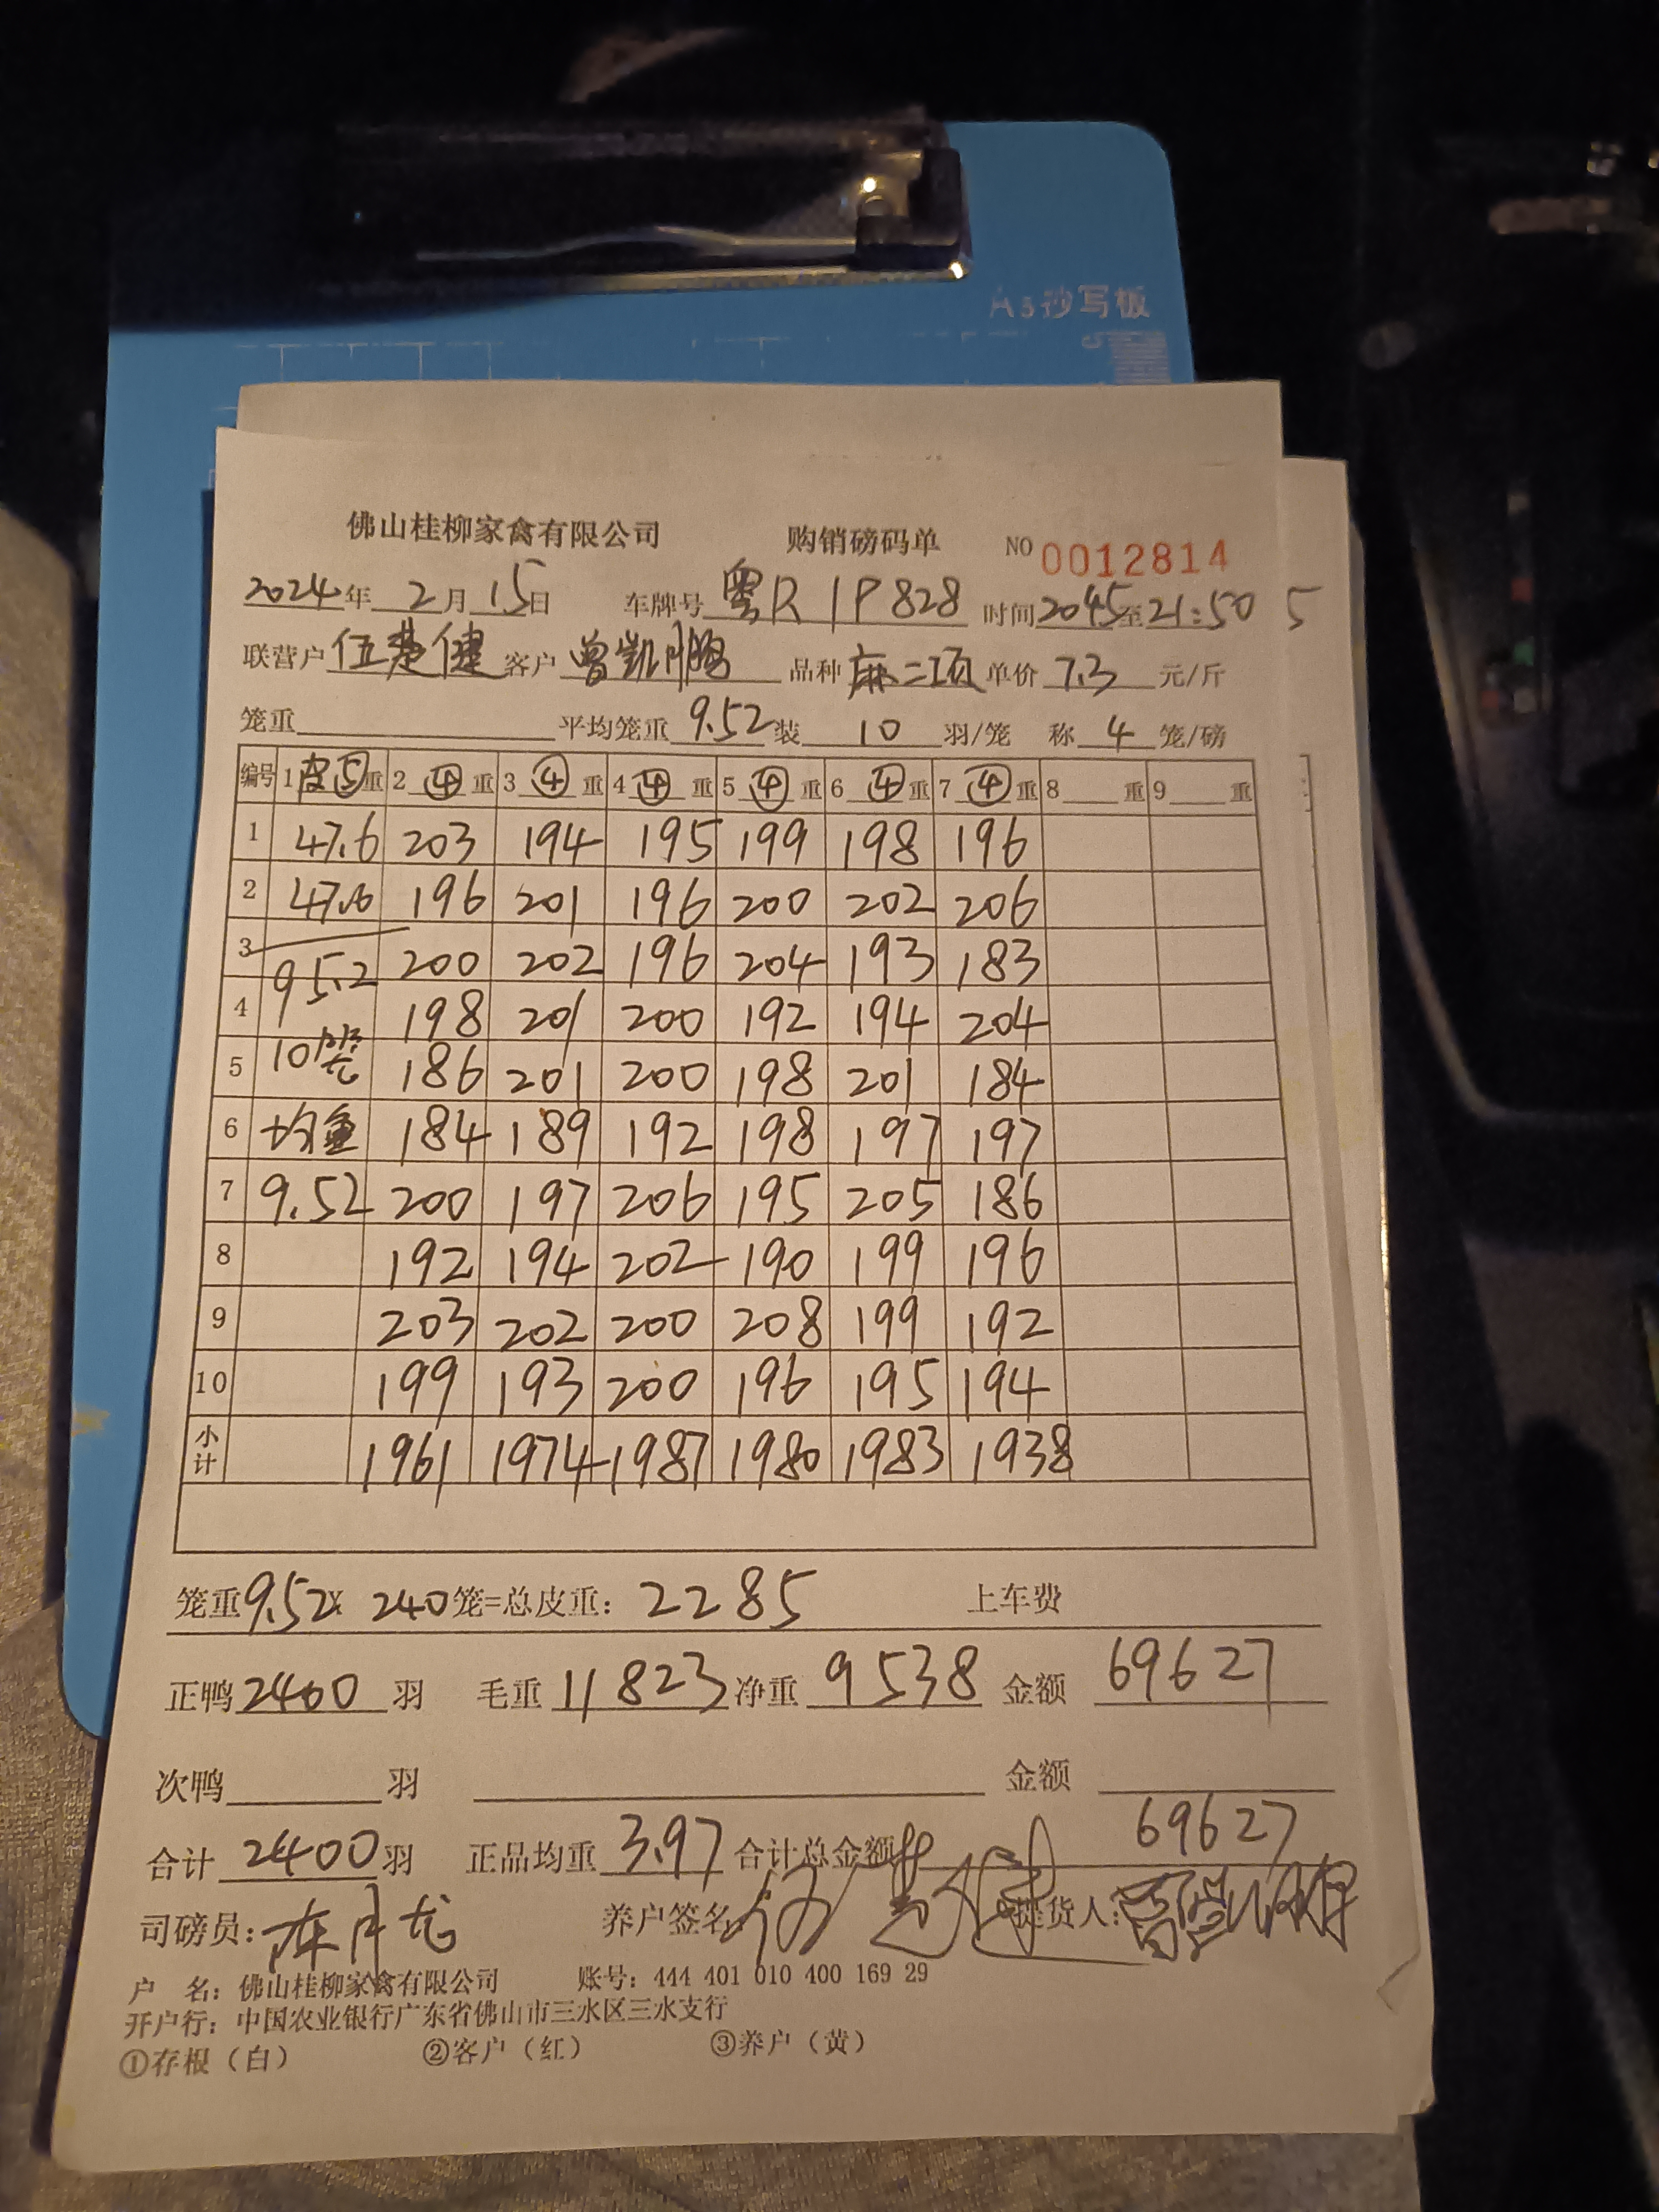 A5抄写板
佛山桂柳家禽有限公司 购销磅码单 NO 0012814
2024年 2月 15日 车牌号 粤R 1P828 时间 2045至21:50 5
联营户 伍楚健 客户 曾凯鹏 品种 麻二项 单价 7.3 元/斤
笼重 平均笼重 9.52 装 10 羽/笼 称 4 笼/磅
编号 1 皮⑤ 重 2 ④ 重 3 ④ 重 4 ④ 重 5 ④ 重 6 ④ 重 7 ④ 重 8 重 9 重
1 47.6 203 194 195 199 198 196
2 47.6 196 201 196 200 202 206
3 95.2 200 202 196 204 193 183
4 198 201 200 192 194 204
5 10笼 186 201 200 198 201 184
6 均重 184 189 192 198 197 197
7 9.52 200 197 206 195 205 186
8 192 194 202 190 199 196
9 203 202 200 208 199 192
10 199 193 200 196 195 194
小计 1961 1974 1987 1980 1983 1938
笼重 9.52 x 240 笼=总皮重： 2285 上车费
正鸭 2400 羽 毛重 11823 净重 9538 金额 69627
次鸭 羽 金额
合计 2400 羽 正品均重 3.97 合计总金额 69627
司磅员： 养户签名 伍楚健 提货人： 曾凯鹏
户 名：佛山桂柳家禽有限公司 账号：444 401 010 400 169 29
开户行：中国农业银行广东省佛山市三水区三水支行
①存根（白） ②客户（红） ③养户（黄）